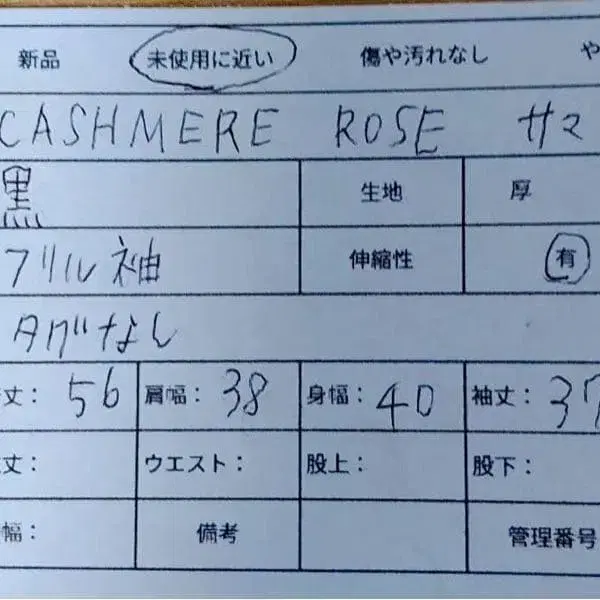 新品 未使用に近い 傷や汚れなし や
CASHMERE ROSE サマ
黒 生地 厚
フリル袖 伸縮性 有
タグなし
丈: 56 肩幅: 38 身幅: 40 袖丈: 37
丈: ウエスト: 股上: 股下:
幅: 備考 管理番号